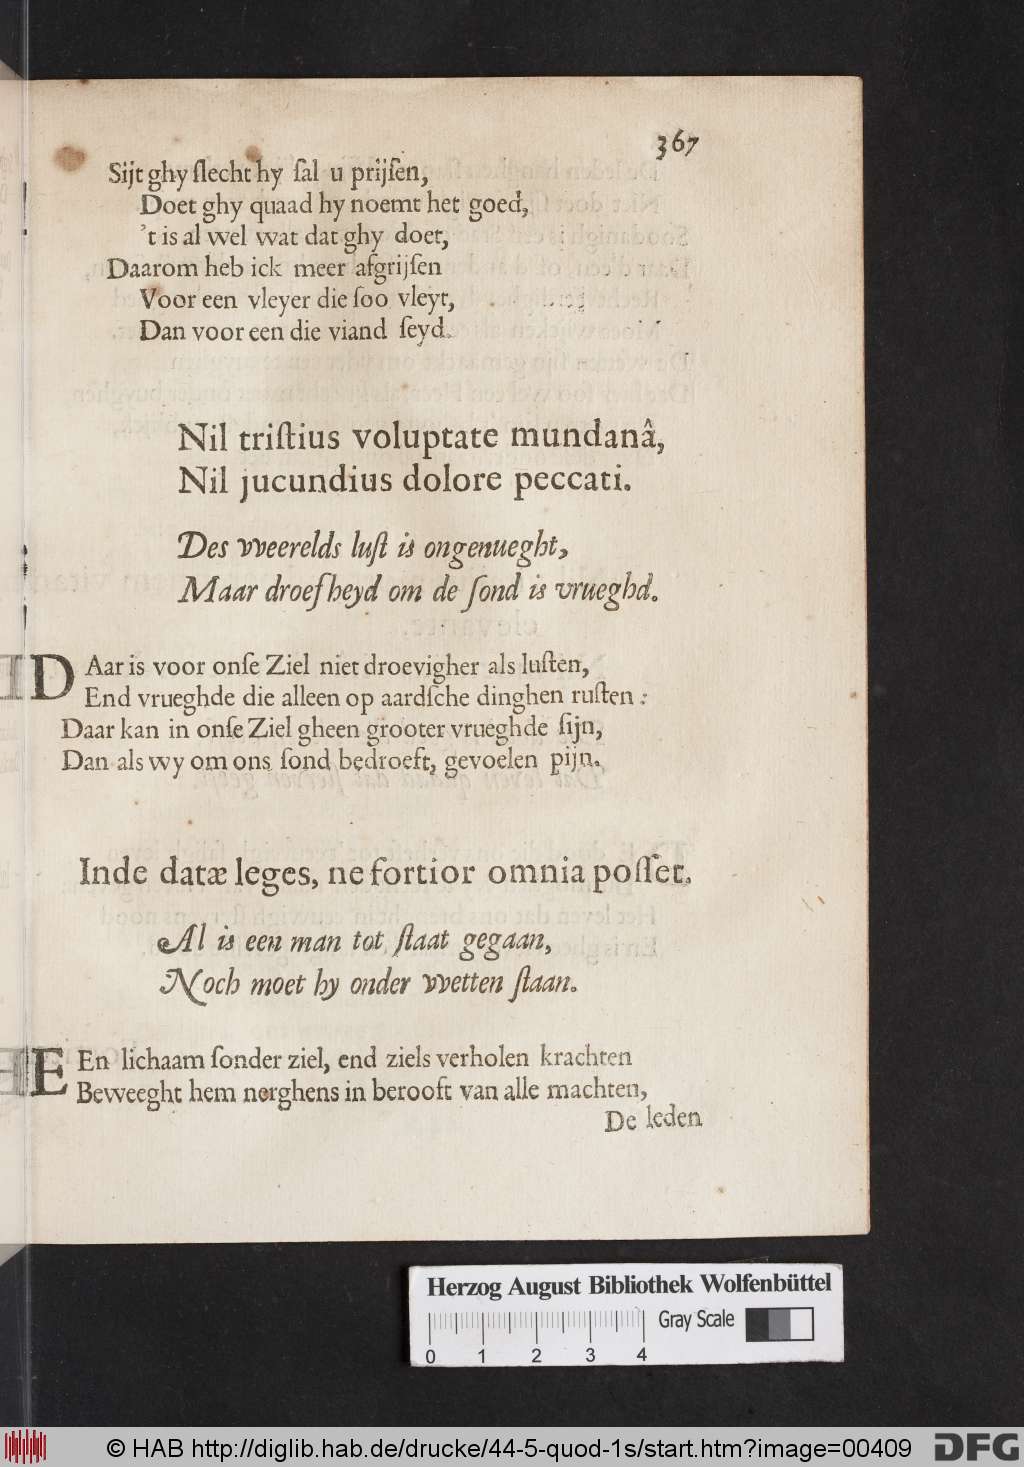 367
Sijt ghy ſlecht hy ſal u prijſen,
Doet ghy quaad hy noemt het goed,
't is al wel wat dat ghy doet,
Daarom heb ick meer afgrijſen
Voor een vleyer die ſoo vleyt,
Dan voor een die viand ſeyd.
Nil triſtius voluptate mundanâ,
Nil jucundius dolore peccati.
Des vveerelds luſt is ongenueght,
Maar droefheyd om de ſond is vrueghd.
DAar is voor onſe Ziel niet droevigher als luſten,
End vrueghde die alleen op aardſche dinghen ruſten:
Daar kan in onſe Ziel gheen grooter vrueghde ſijn,
Dan als wy om ons ſond bedroeft, gevoelen pijn.
Inde datæ leges, ne fortior omnia poſſet.
Al is een man tot ſtaat gegaan,
Noch moet hy onder vvetten ſtaan.
EEn lichaam ſonder ziel, end ziels verholen krachten
Beweeght hem nerghens in berooft van alle machten,
De leden
Herzog August Bibliothek Wolfenbüttel
Gray Scale
0 1 2 3 4
© HAB http://diglib.hab.de/drucke/44-5-quod-1s/start.htm?image=00409
DFG